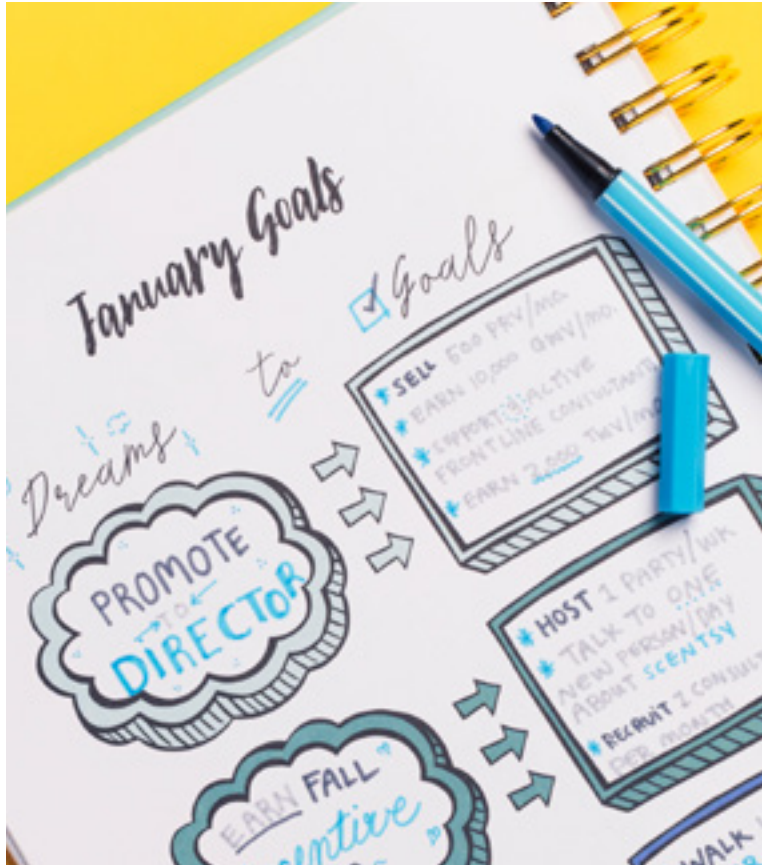 January Goals
Dreams
to
Goals
PROMOTE
TO
DIRECTOR
SELL 500 PRV/MO.
EARN 10,000 GWV/MO.
SUPPORT ACTIVE
FRONTLINE CONSULTANT
EARN 2,000 TWV/MO
EARN FALL
HOST 1 PARTY/WK
TALK TO ONE
NEW PERSON/DAY
ABOUT SCENTSY
RECRUIT 1 CONSULT
PER MONTH
WALK